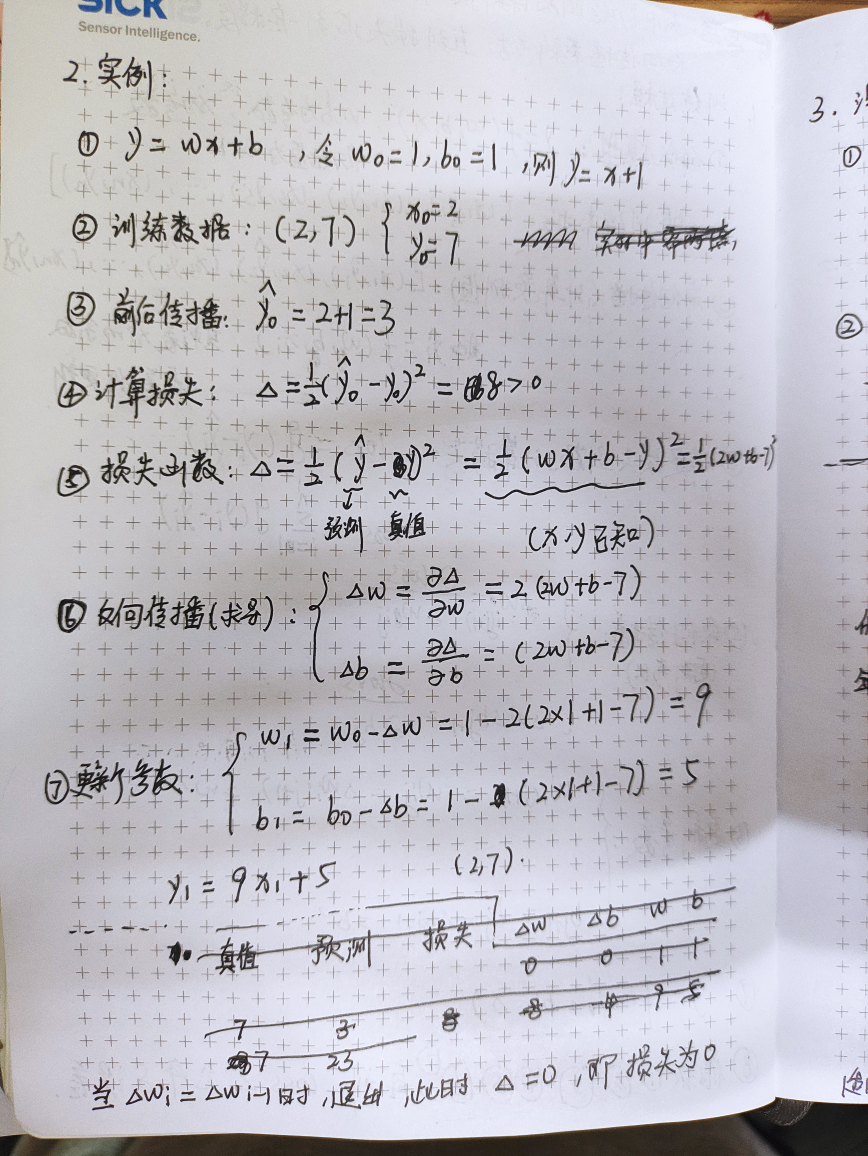 SICK
Sensor Intelligence.
2. 实例:
① y = wx+b , 令 w₀=1, b₀=1 , 则 y = x+1
② 训练数据: (2,7) { x₀=2
y₀=7
③ 前向传播: ŷ₀ = 2+1 = 3
④ 计算损失: Δ = 1/2 (ŷ₀ - y₀)² = 8 > 0
⑤ 损失函数: Δ = 1/2 (ŷ - y)² = 1/2 (wx+b-y)² = 1/2 (2w+b-7)²
预测 真值 (x,y已知)
⑥ 反向传播(求导): { Δw = ∂Δ/∂w = 2(2w+b-7)
Δb = ∂Δ/∂b = (2w+b-7)
⑦ 更新参数: { w₁ = w₀ - Δw = 1 - 2(2×1+1-7) = 9
b₁ = b₀ - Δb = 1 - (2×1+1-7) = 5
y₁ = 9x₁+5 (2,7).
真值 预测 损失 Δw Δb w b
0 0 1 1
7 3 8 -8 -4 9 5
7 23
当 Δwᵢ = Δwᵢ₋₁ 时, 退出, 此时 Δ=0, 即损失为0
3.
①
②